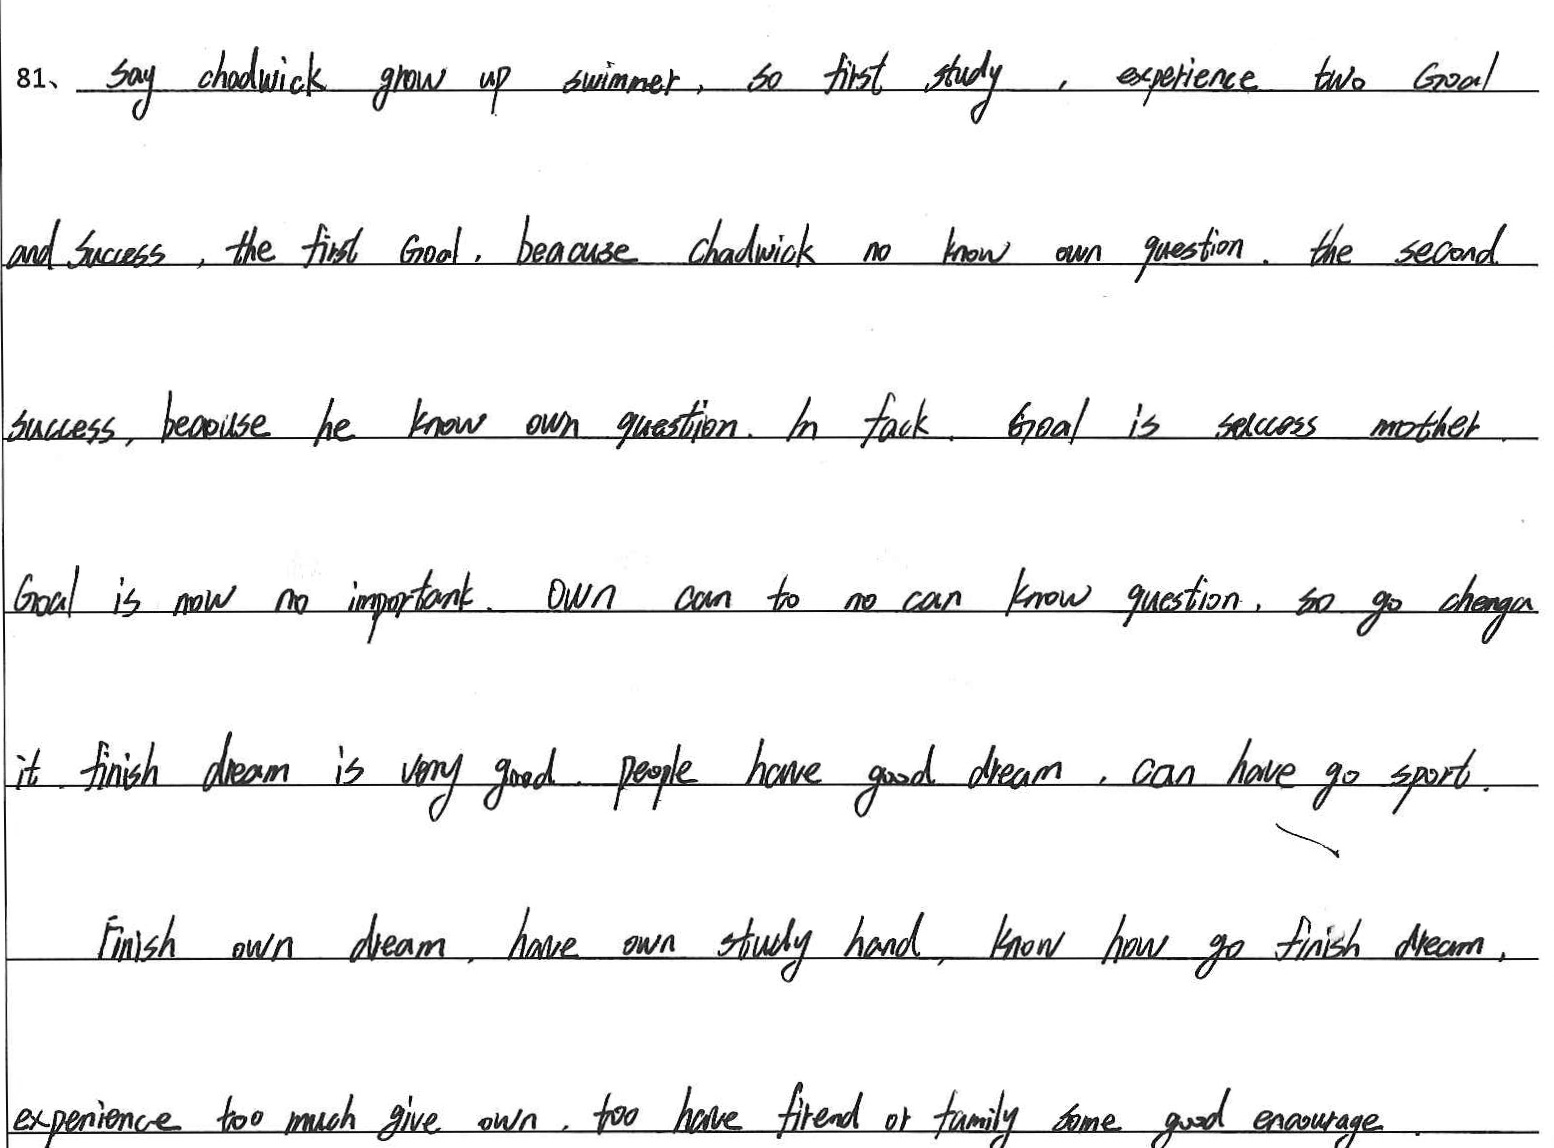 81、 Say chadwick grow up swimmer, so first study, experience two Goal
and Success, the first Goal, beacuse Chadwick no know own question. the second
success, becouse he know own question. In fack. Goal is seccess mother.
Goal is now no important. Own can to no can know question, so go chenga
it. finish dream is very good. people have good dream, can have go sport.
Finish own dream, have own study hand, know how go finish dream,
experience too much give own, too have firend or family some good encourage.